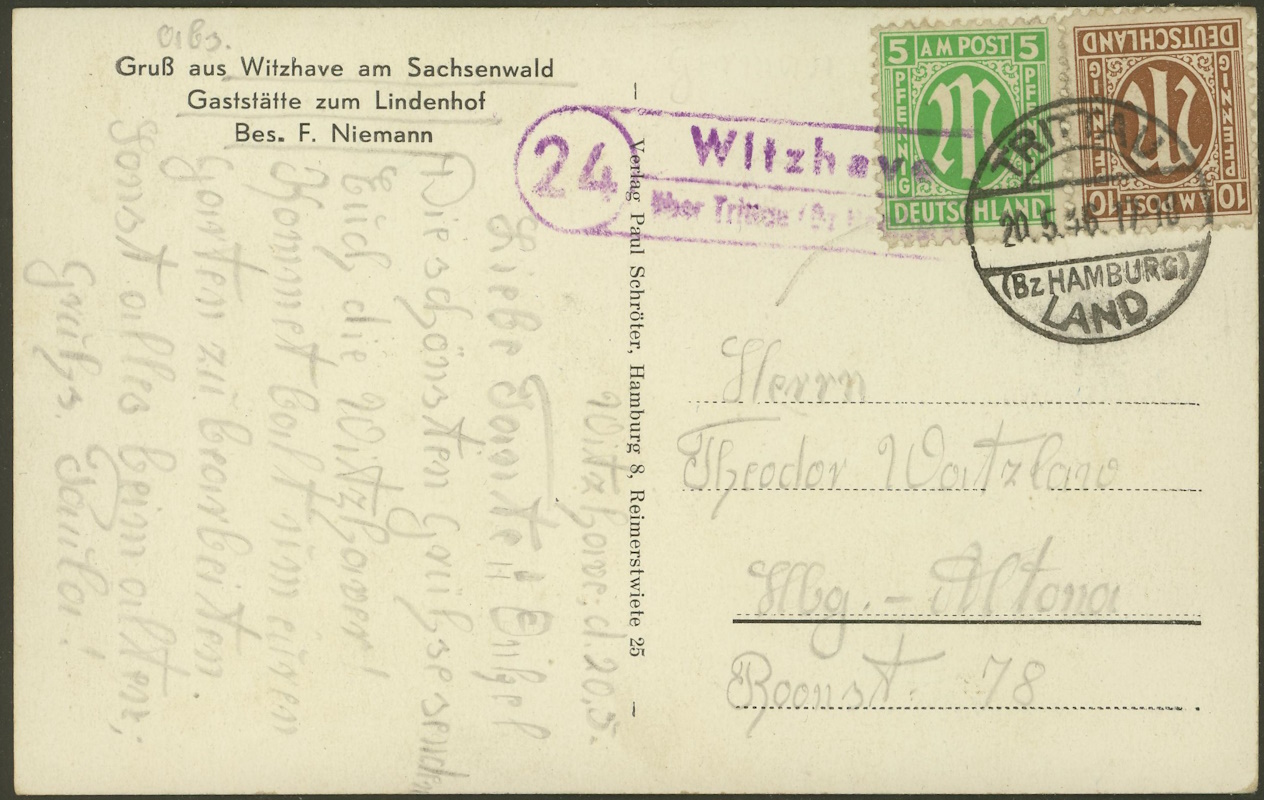 Abs.
Gruß aus Witzhave am Sachsenwald
Gaststätte zum Lindenhof
Bes. F. Niemann
24
Witzhave
über Trittau (Bz
5 AM POST 5
PFENNIG
PFENNIG
DEUTSCHLAND
DEUTSCHLAND
PFENNIG
PFENNIG
10 AM POST 10
TRITTAU
20.5.46 17-18
(Bz HAMBURG)
LAND
Verlag Paul Schröter, Hamburg 8, Reimerstwiete 25
Witzhave. d. 20.5.
Liebe Tante u. Onkel
Die schönsten Grüße senden
Euch die Witzhaver!
Kommet bald um euren
Garten zu bearbeiten.
Sonst alles beim alten,
Grüße.
Herrn
Theodor Watzlaw
Hbg. - Altona
Roonst. 78